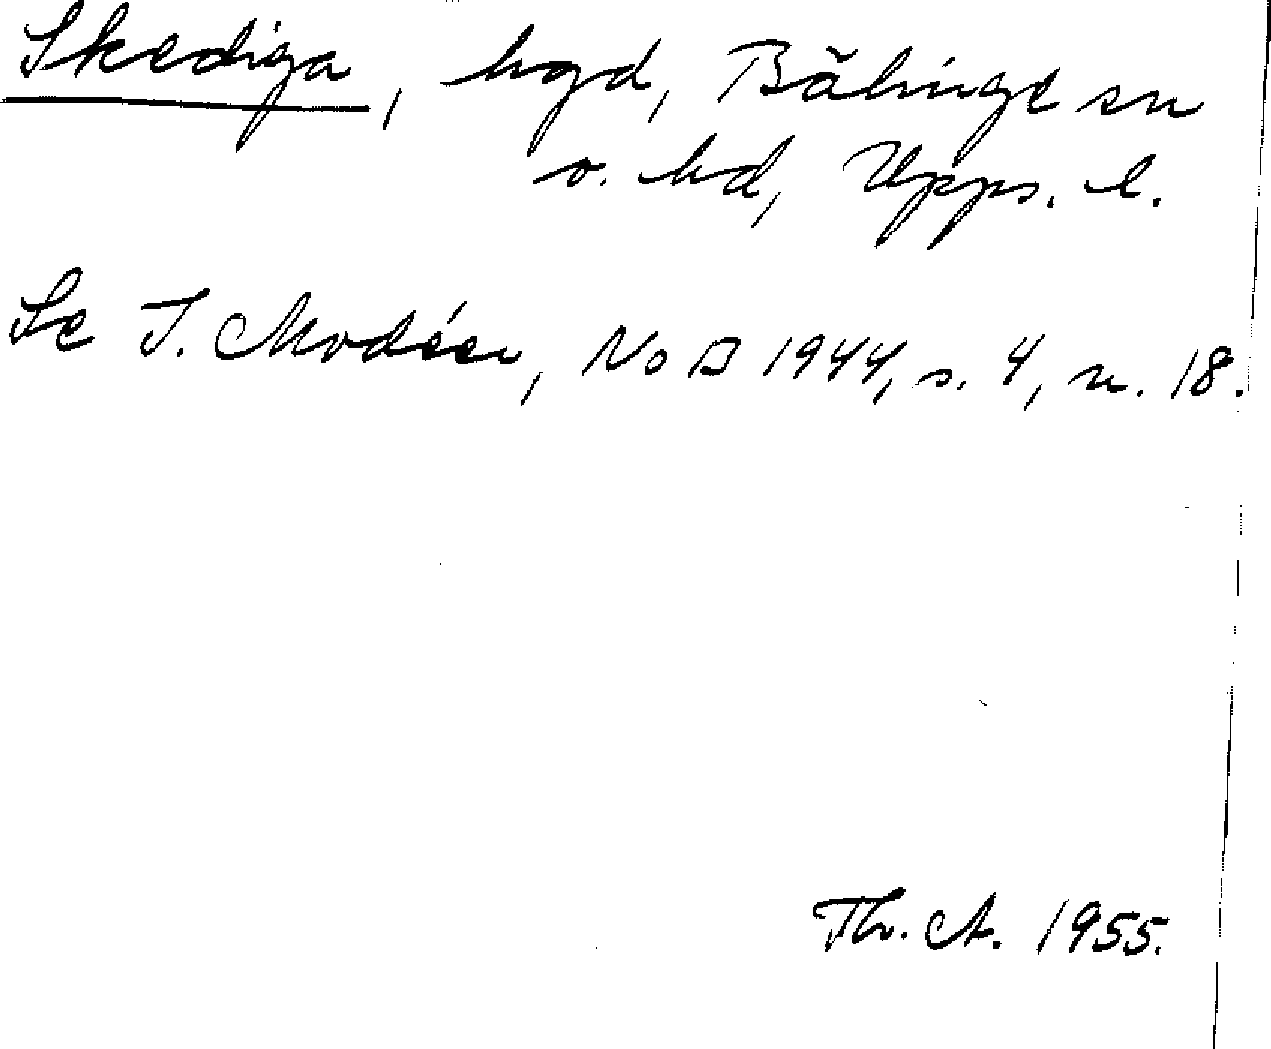 Skediga, hgd, Bälinge sn
o. hd, Upps. l.
Se I. Modéer, NoB 1944, s. 4, n. 18.
Th. A. 1955.